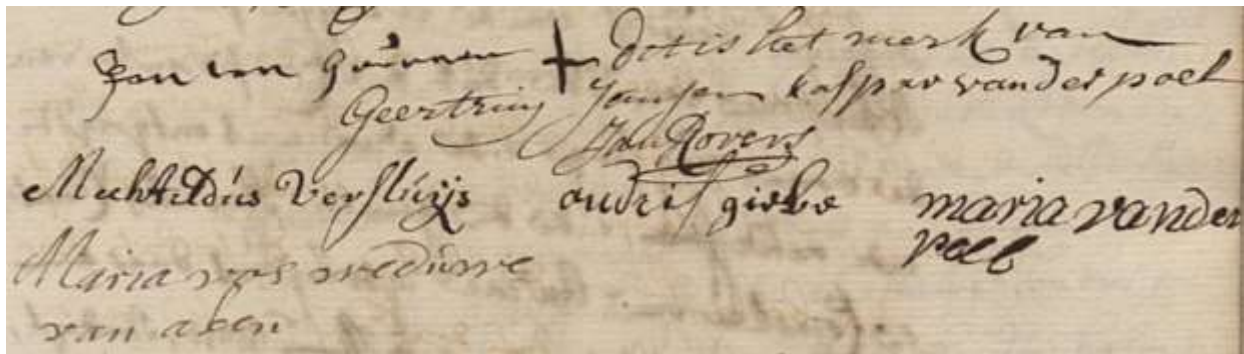 Jan van + dit is het merk van
Geertruij Jansen kasper van der poel
Jan Rovers
Mechtildis Versluijs andris giebe maria van der
poel
Maria vos weduwe
van aken